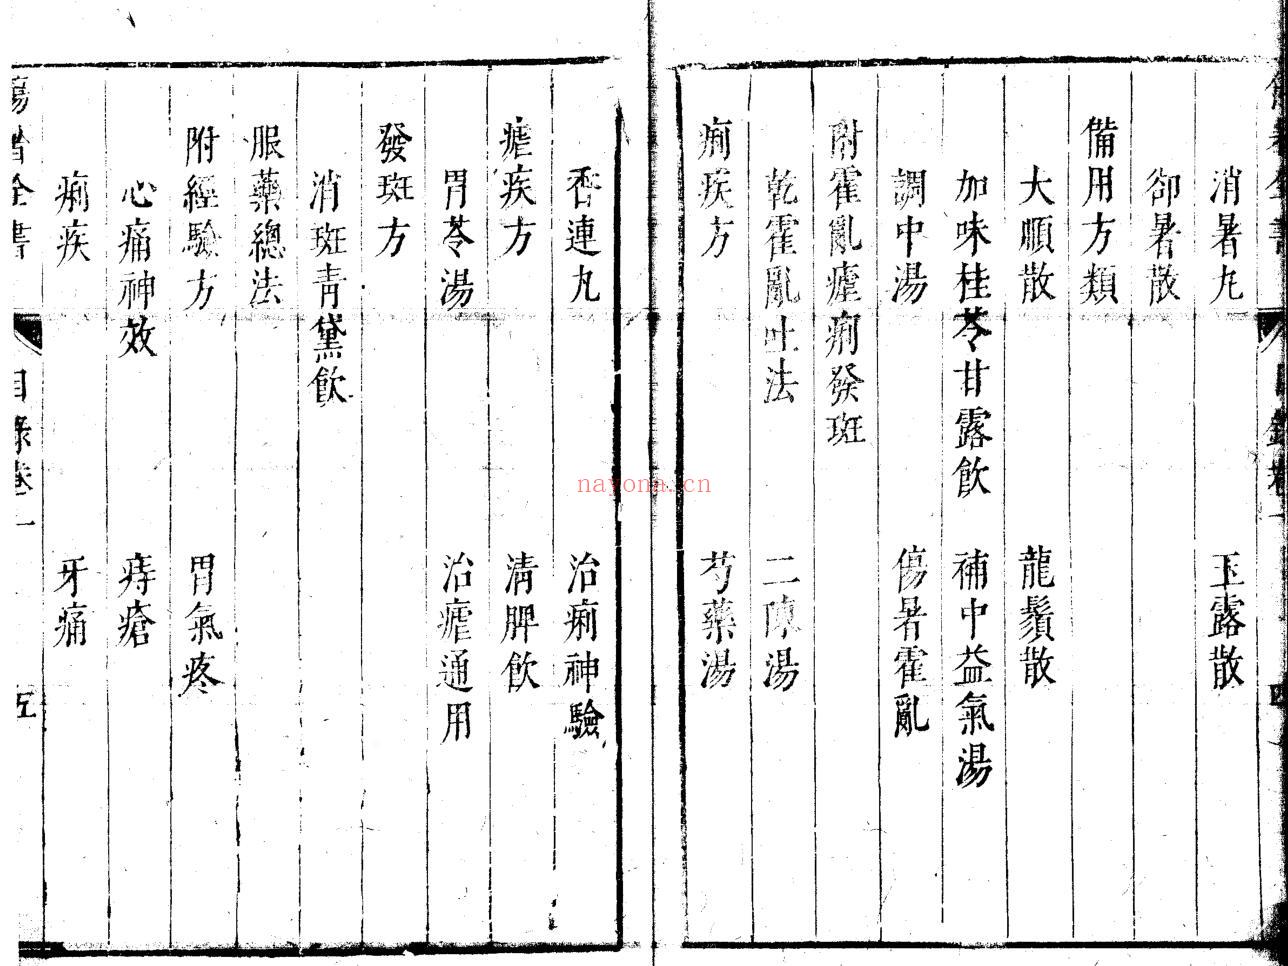 消暑丸　玉露散
卻暑散
備用方類
大順散　龍鬚散
加味桂苓甘露飲　補中益氣湯
調中湯　傷暑霍亂
附霍亂瘧痢發斑
乾霍亂吐法　二陳湯
痢疾方　芍藥湯
香連丸　治痢神驗
瘧疾方　清脾飲
胃苓湯　治瘧通用
發斑方
消斑青黛飲
服藥總法
附經驗方　胃氣疼
心痛神效　痔瘡
痢疾　牙痛
傷暑全書　目錄卷一　五
nayona.cn